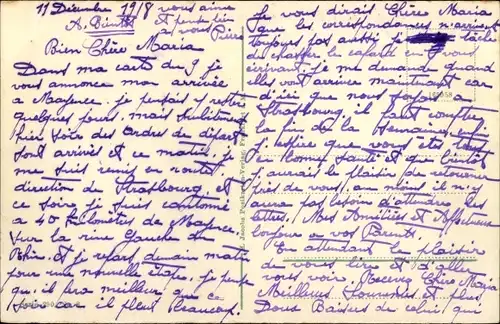 11 Décembre 1918
A. Bientôt
vous aime
et pense bien
a vous
Pierre
Bien Chère Maria
Dans ma carte du 9 je
vous annonce mon arrivée
a Mayence. je pensais y rester
quelques jours. mais subitement
hier soir des ordres de départ
sont arrivés et ce matin je
me suis remis en route
direction de Strasbourg et
ce soir je suis cantonné
a 40 kilomètres de Mayence,
sur la rive Gauche du
Rhin. et je repars demain matin
pour une nouvelle étape. je pense
qu'il fera meilleur que ce
soir car il pleut beaucoup.
je vous dirait Chère Maria
que les correspondances n'arrivent
toujours pas aussi je tâche
de chasser le cafard en vous
écrivant. je me demande quand
elles arrive maintenant car
d'ici que nous soyons a
Strasbourg il faut compter
la fin de la Semaine, enfin
j'espère que vous êtes tous
en bonne santé et que bientôt
j'aurais le plaisir de retourner
près de vous, au moins il n'y
aura pas besoin d'attendre les
lettres. Mes Amitiés et Affection
toujours a vos Parents.
En attendant le plaisir
de vous lire et d'aller
vous voir. Recevez Chère Maria
Meilleurs Souvenirs et plus
Doux Baisers de celui qui